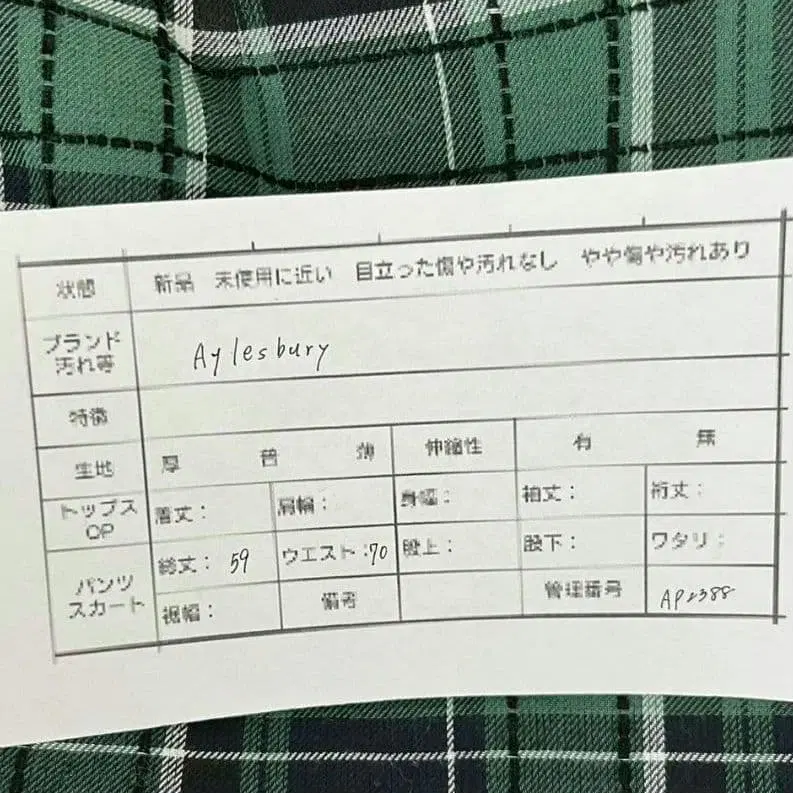 状態 新品 未使用に近い 目立った傷や汚れなし やや傷や汚れあり
ブランド
汚れ等
Aylesbury
特徴
生地 厚 普 薄 伸縮性 有 無
トップス
OP
着丈: 肩幅: 身幅: 袖丈: 裄丈:
パンツ
スカート
総丈: 59 ウエスト:70 股上: 股下: ワタリ:
裾幅: 備考 管理番号 AP2388